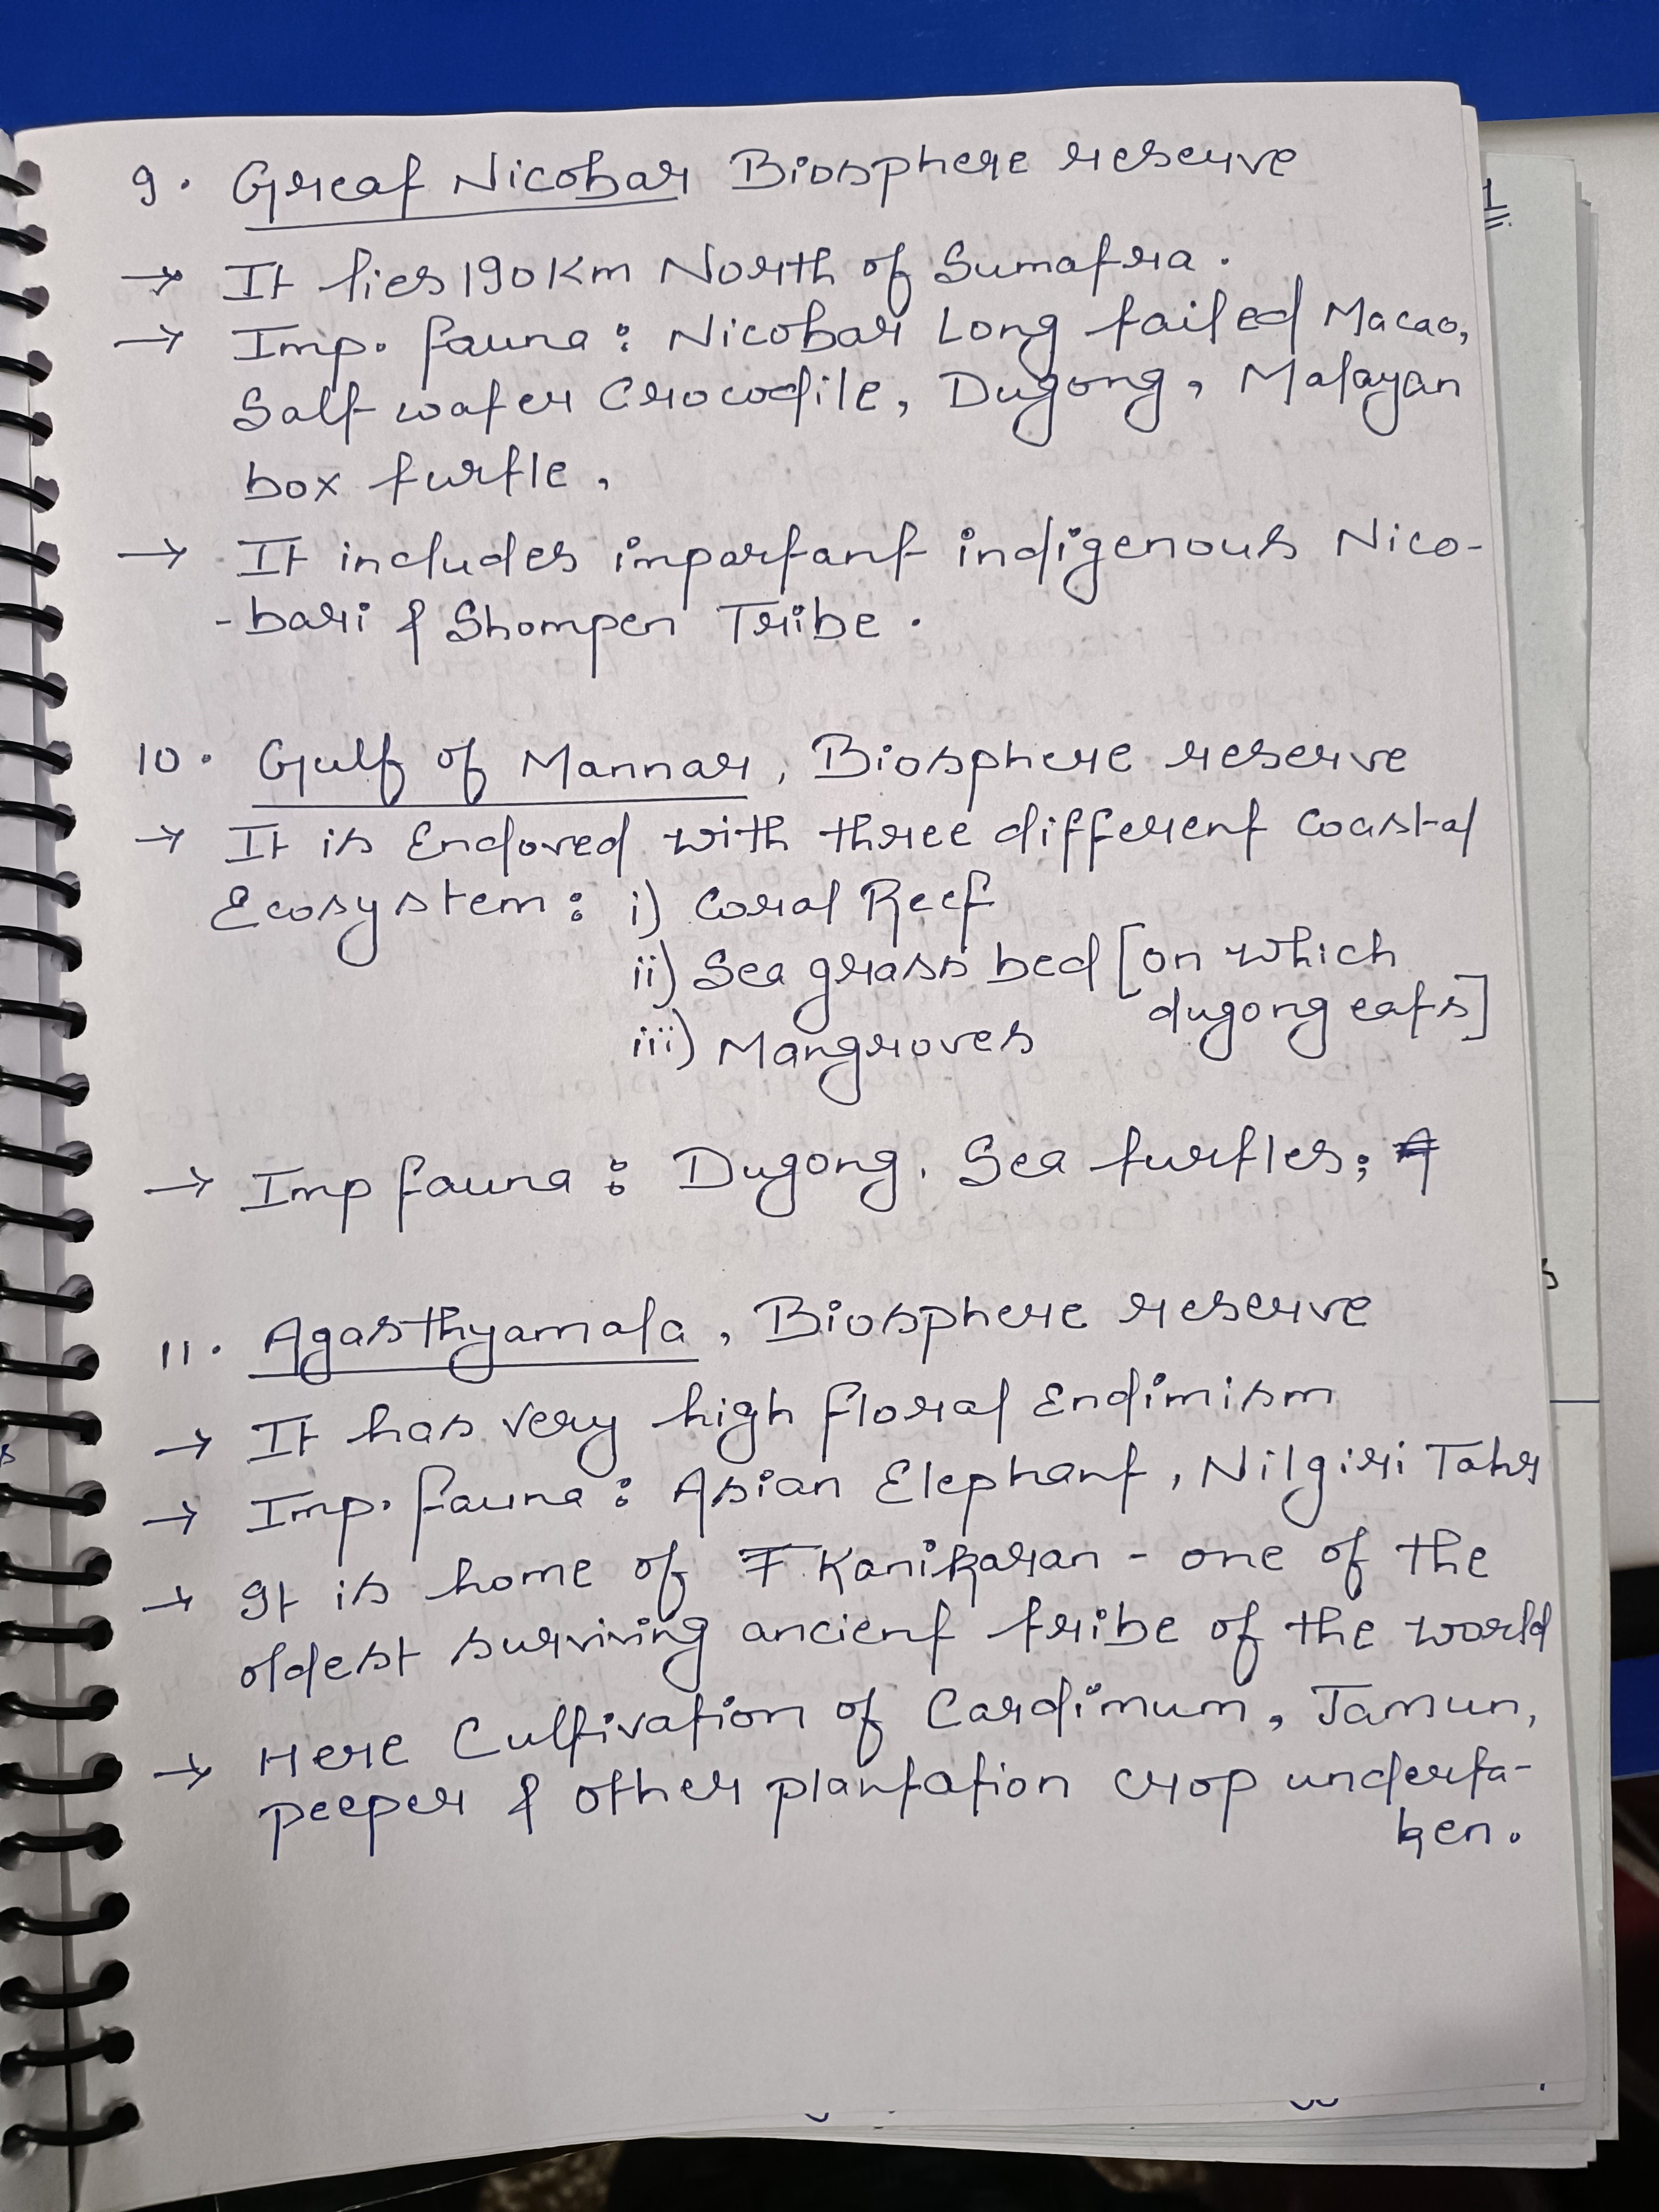 9. Great Nicobar Biosphere reserve
→ It lies 190Km North of Sumatra.
→ Imp. fauna : Nicobar Long tailed Macao,
Salt water Crocodile, Dugong, Malayan
box turtle,
→ It includes importanf indigenous Nico-
-bari & Shompen Tribe.
10. Gulf of Mannar, Biosphere reserve
→ It is Endoved with three different Coastal
Ecosystem : i) Coral Reef
ii) Sea grass bed [on which
dugong eats]
iii) Mangroves
→ Imp fauna : Dugong, Sea turtles;
11. Agasthyamala, Biosphere reserve
→ It has very high floral Endimism
→ Imp. fauna : Asian Elephant, Nilgiri Tahr
→ It is home of Kanikaran - one of the
oldest surviving ancient tribe of the world
→ Here Cultivation of Cardimum, Jamun,
peeper & other plantation crop underta-
ken.